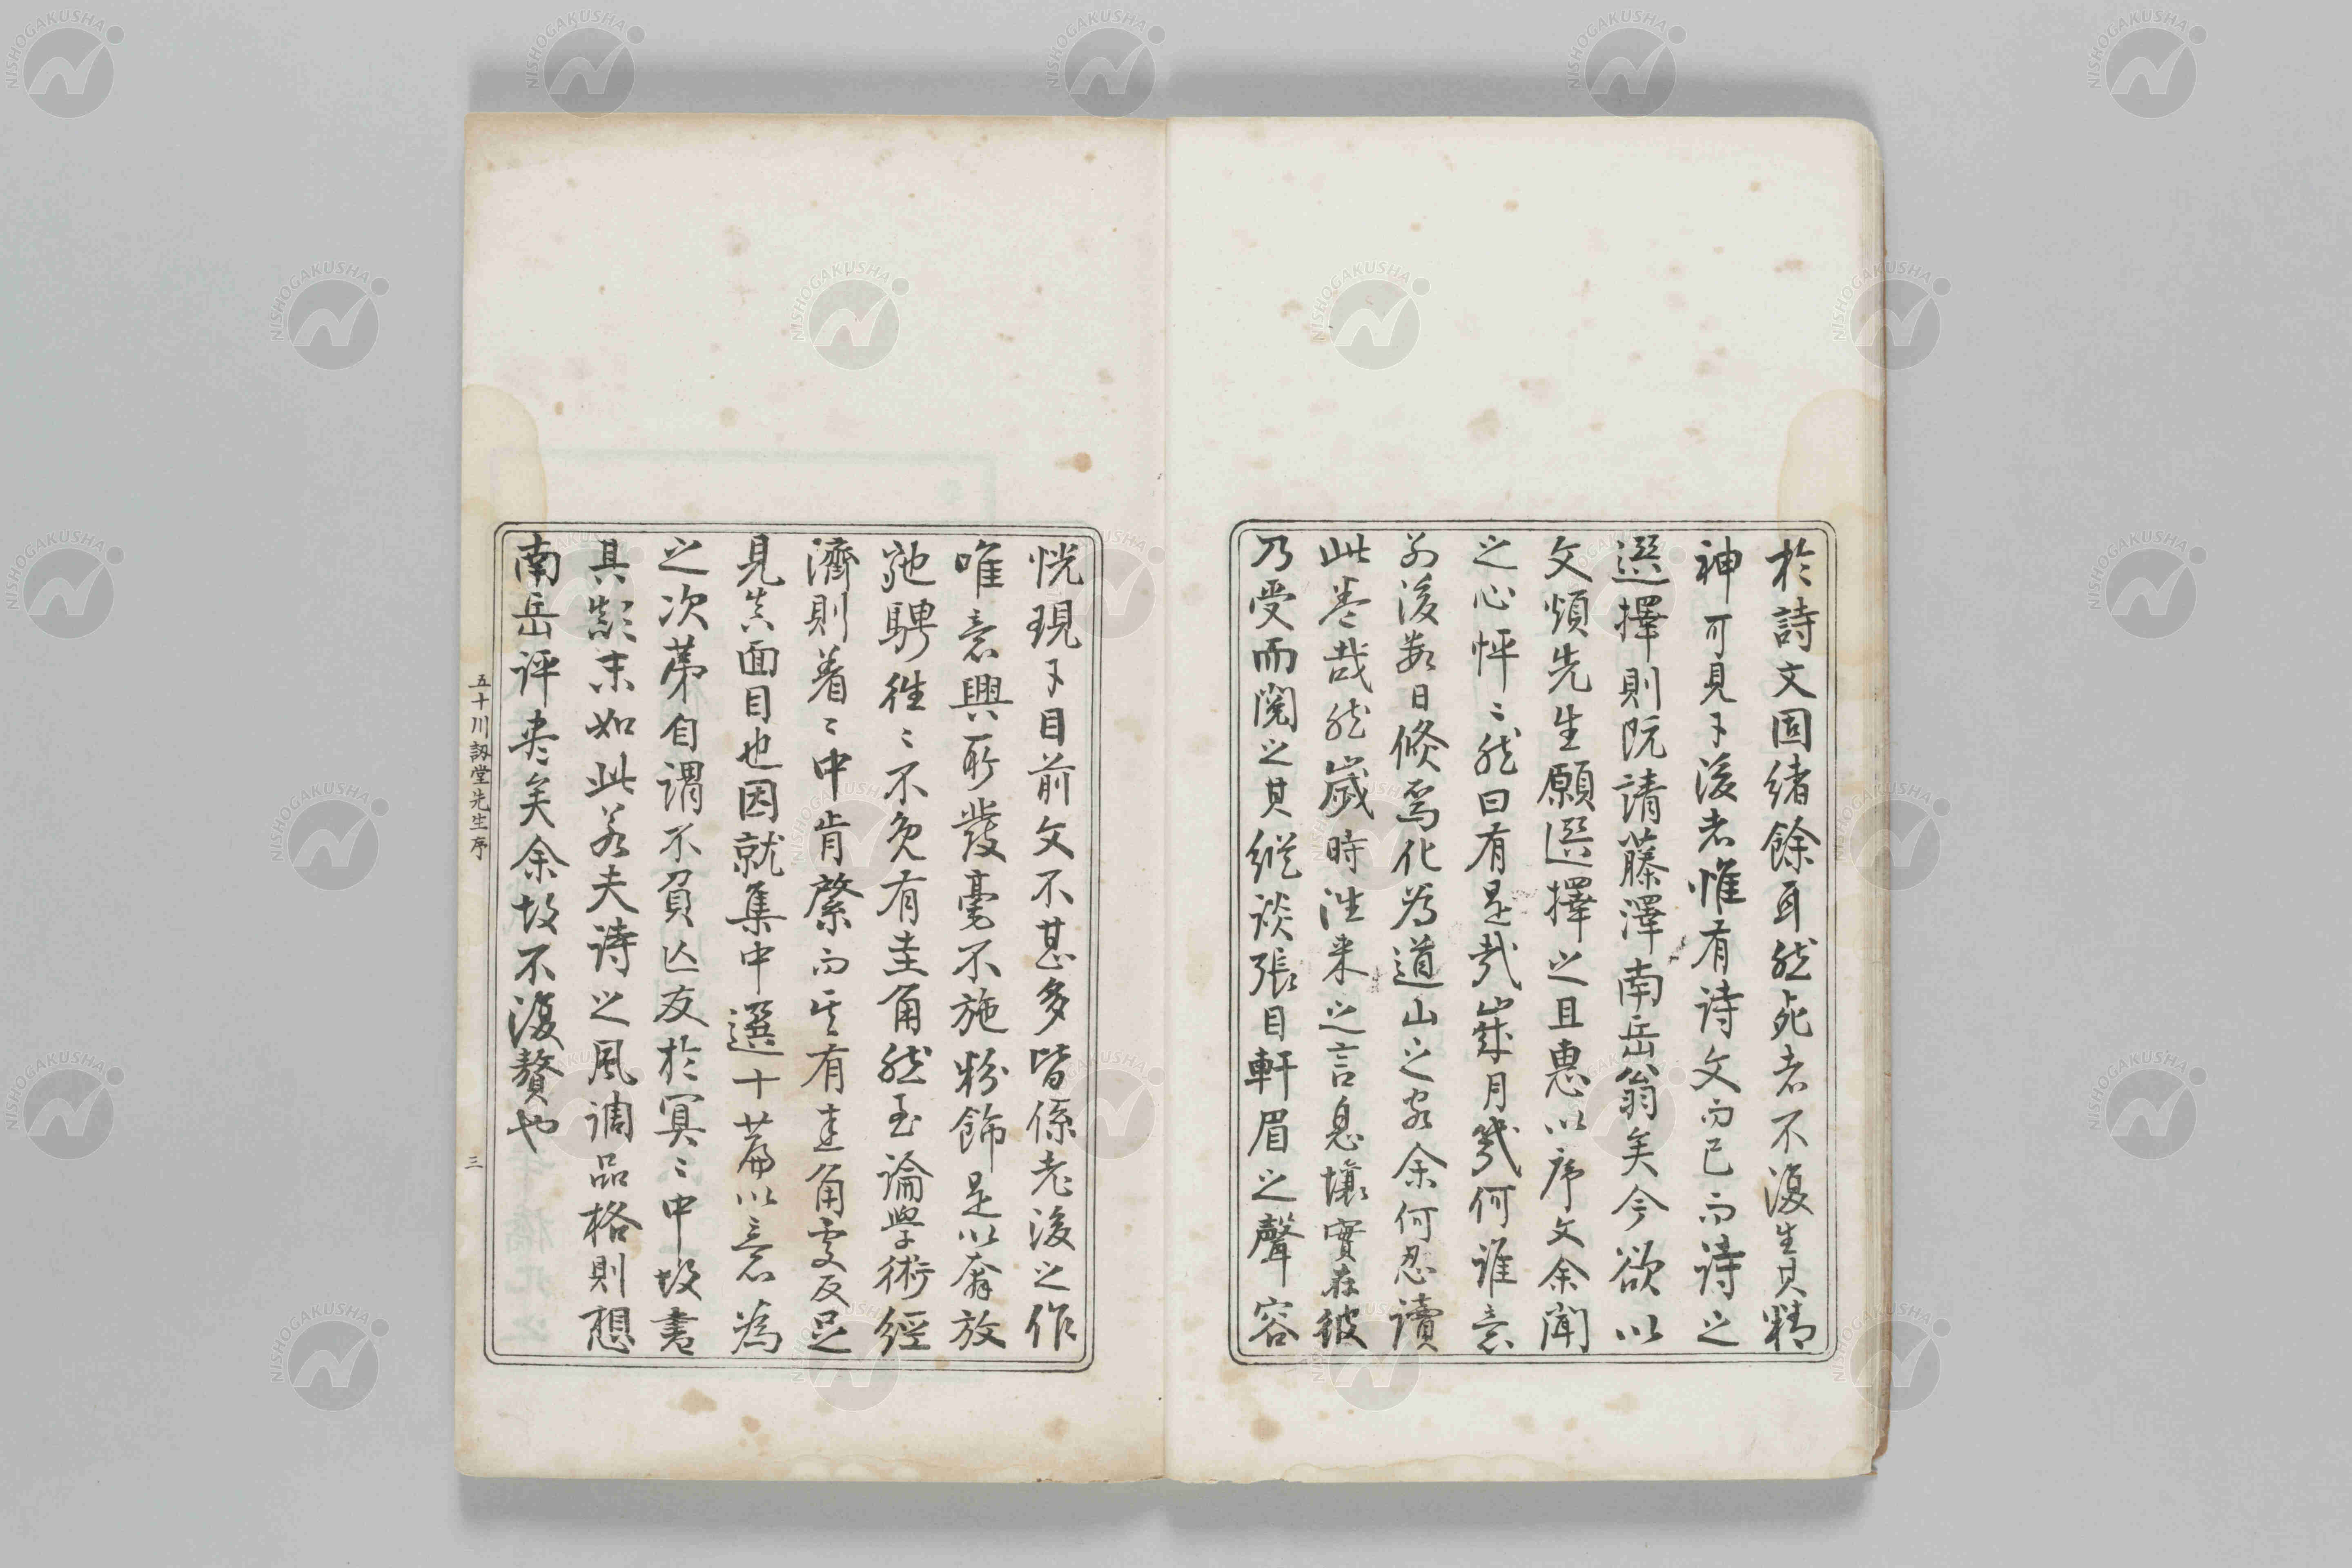 於詩文固緒餘耳然死者不復生其精
神可見于後者惟有詩文而已而詩之
選擇則既請藤澤南岳翁矣今欲以
文煩先生願選擇之且惠以序文余聞
之心怦〻然曰有是哉歳月幾何誰意
別後数日倏焉化為道山之客余何忍讀
此巻哉然歳時往来之言息壤實在彼
乃受而閲之其縱談張目軒眉之聲容
恍現于目前文不甚多皆係老後之作
唯意興所發毫不施粉飾是以奔放
馳騁往〻不免有圭角然至論學術經
濟則着〻中肯綮而其有圭角處反足
見其面目也因就集中選十篇以意為
之次第自謂不負亡友於冥〻中故書
其顛末如此若夫詩之風調品格則想
南岳評盡矣余故不復贅也
五十川訒堂先生序
三
NISHOGAKUSHA